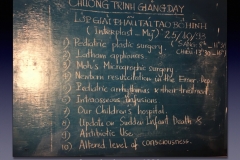 CHƯƠNG TRÌNH GIẢNG DẠY
LỚP GIẢI PHẪU TÁI TẠO BỘ HÌNH
(Interplast - Mỹ) 25/10/93
1) Pediatric plastic surgery.
2) Latham appliances
3) Moh's Micrographic surgery
4) Newborn resuscitation in the Emer. Dep.
5) Pediatric arrhythmias & their treatment.
6) Intraosseous infusion
7) Our Children's hospital.
8) Update on Sudden Infant Death S
9) Antibiotic Use
10) Altered level of consciousness.